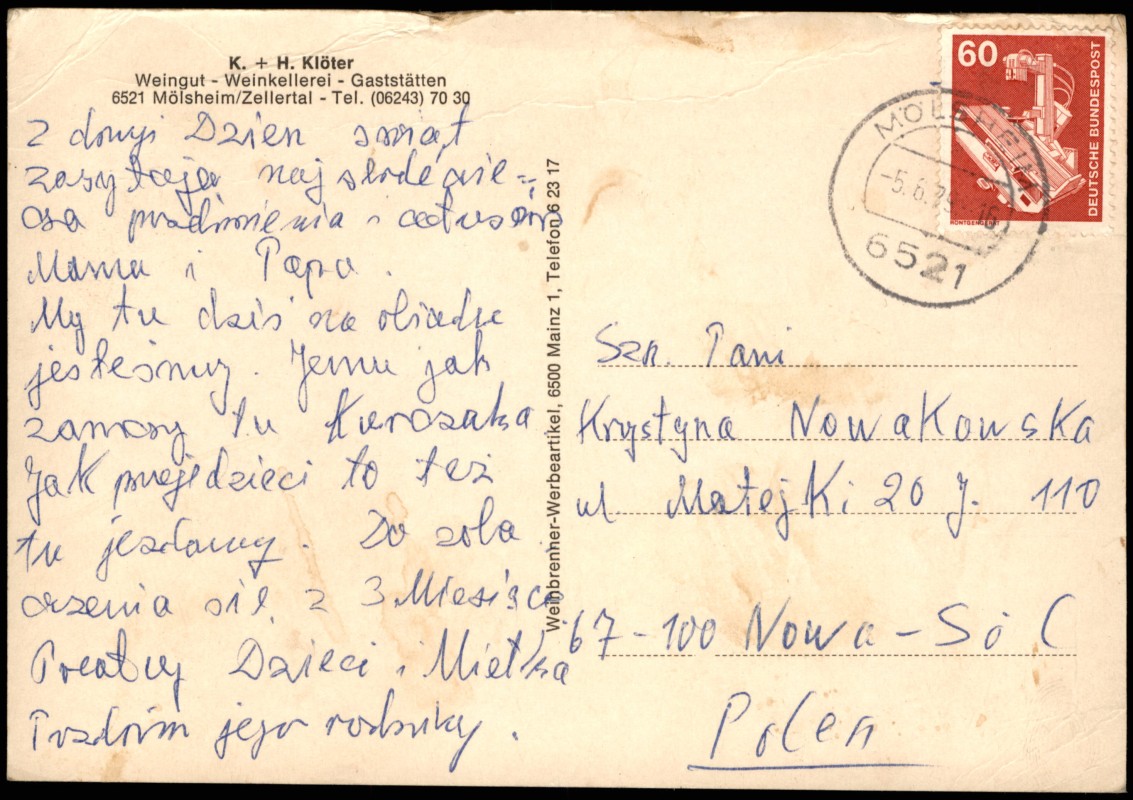 K. + H. Klöter
Weingut - Weinkellerei - Gaststätten
6521 Mölsheim/Zellertal - Tel. (06243) 70 30
z drugi Dzien swiąt
zasyłają najserdecznie=
sza pozdrowienia i całusów
Mama i Papa.
My tu dziś na obiadu
jesteśmy. Jemu jak
zawszy tu Kurczaka
Jak przyjedzieci to też
tu jezdamy. Do zoba
czenia się z 3 Miesiące
Dzieci i Mietka
Pozdrów jego rodzinky.
Weinbrenner-Werbeartikel, 6500 Mainz 1, Telefon 6 23 17
60
DEUTSCHE BUNDESPOST
MÖLSHEIM
-5.6.79-16
6521
Szn. Pani
Krystyna Nowakowska
ul Matejki 20 J. 110
67-100 Nowa-Sól
Polen